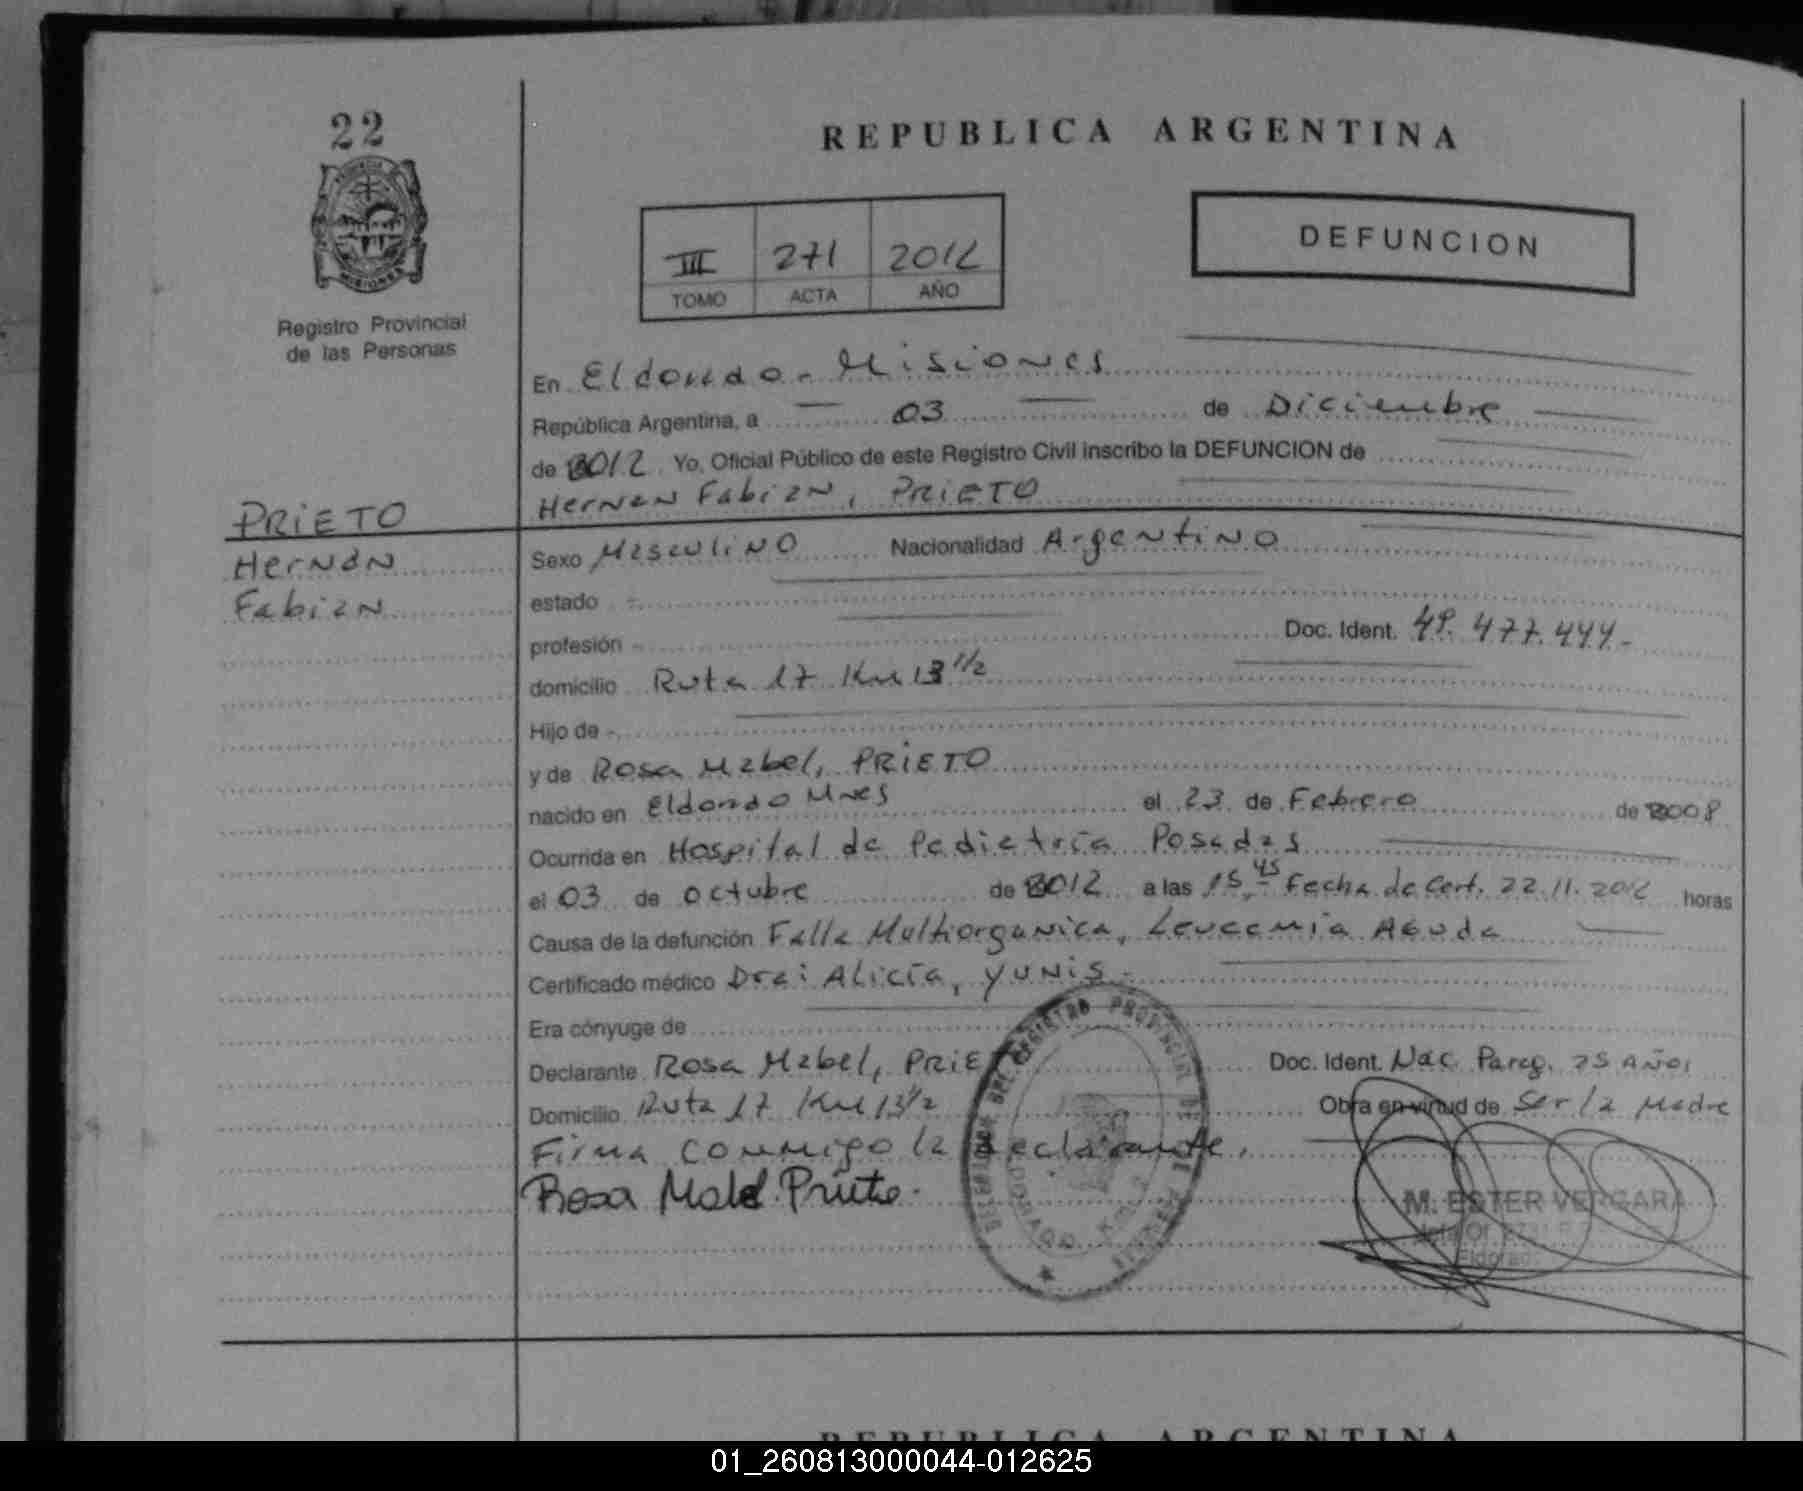 22
REPUBLICA ARGENTINA
PROVINCIA
MISIONES
Registro Provincial
de las Personas
III 271 2012
TOMO ACTA AÑO
DEFUNCION
En Eldorado - Misiones
República Argentina, a 03 de Diciembre
de 2012 Yo, Oficial Público de este Registro Civil inscribo la DEFUNCION de
Hernan Fabian, PRIETO
PRIETO
Hernán
Fabian
Sexo Masculino Nacionalidad Argentino
estado
profesión Doc. Ident. 49.477.444.-
domicilio Ruta 17 Km 13 1/2
Hijo de
y de Rosa Mabel, PRIETO
nacido en Eldorado Mnes el 23 de Febrero de 2008
Ocurrida en Hospital de Pediatría Posadas
el 03 de octubre de 2012 a las 15,45 Fecha de Cert. 22.11.2012 horas
Causa de la defunción Falla Multiorganica, Leucemia Aguda
Certificado médico Dra: Alicia, Yunis.
Era cónyuge de
Declarante Rosa Mabel, PRIE Doc. Ident. Nac. Parag. 25 Años
Domicilio Ruta 17 Km 13 1/2 Obra en virtud de Ser la Madre
Firma conmigo la declarante.
Rosa Mabel Prieto.
DEL REGISTRO PROVINCIAL DE
M. ESTER VERGARA
Eldorado
REPUBLICA ARGENTINA
01_260813000044-012625